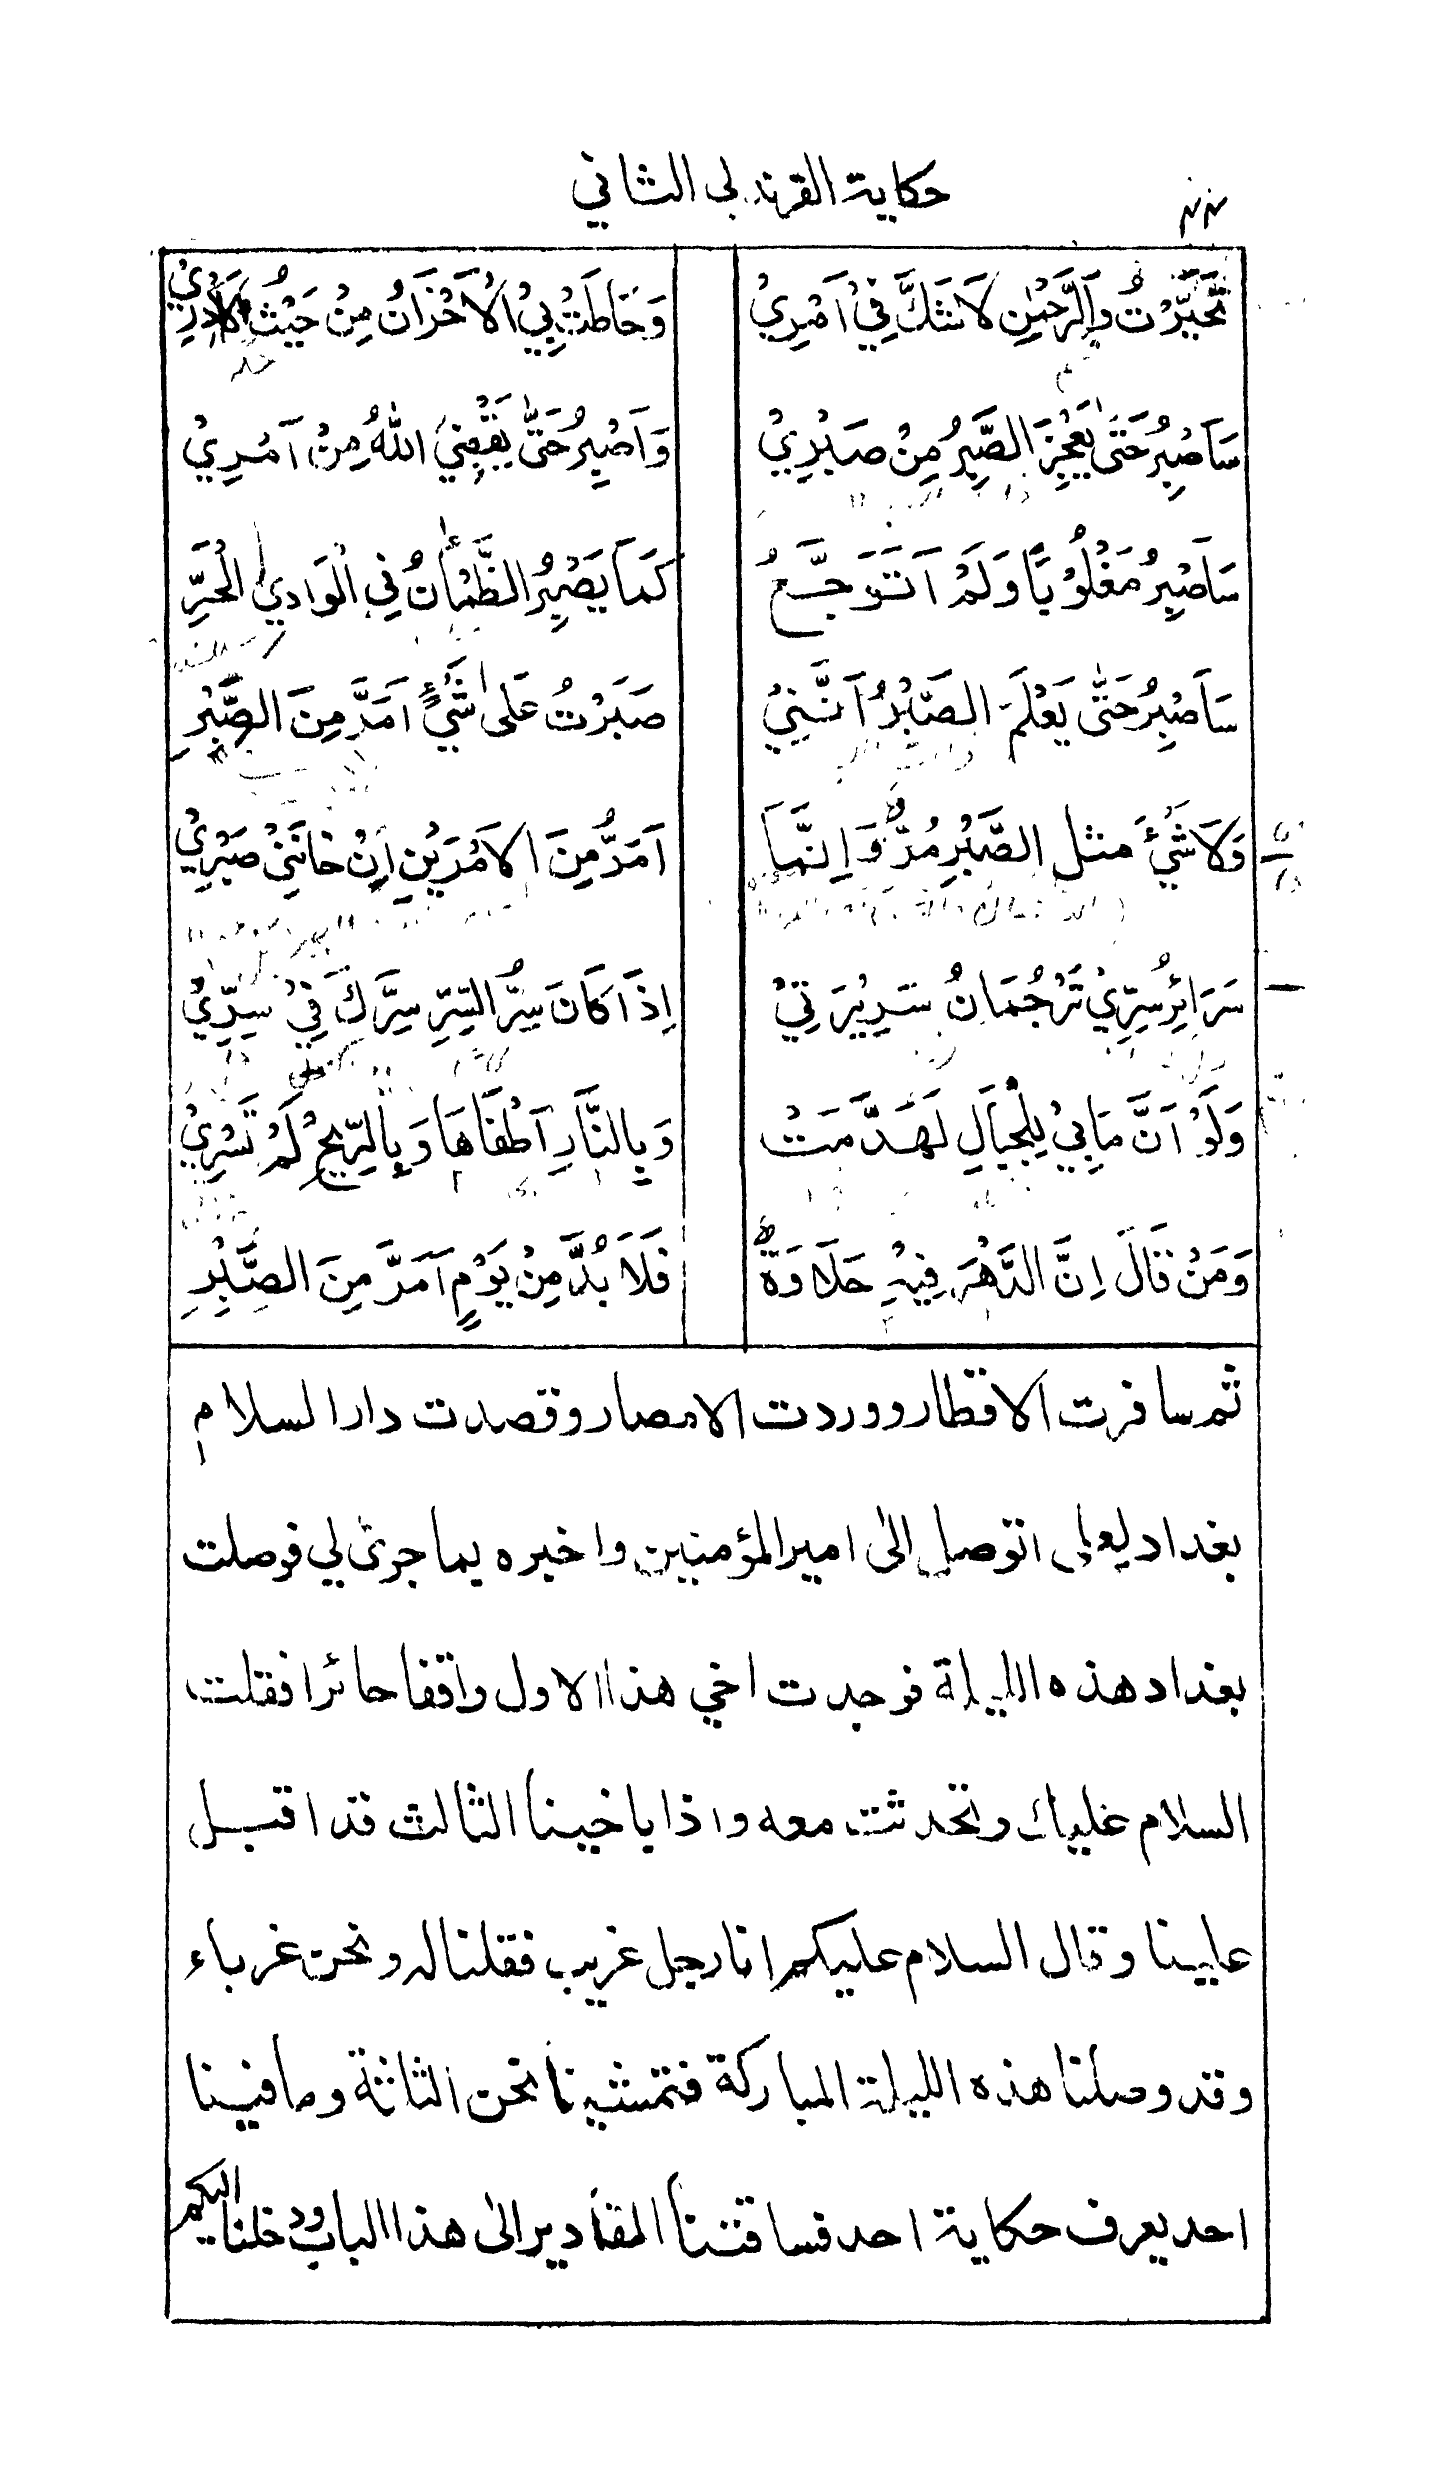 حكاية القرندلي الثاني
تَحَيَّرْتُ وَالرَّحْمٰنِ لَا شَكَّ فِيْ اَمْرِيْ وَحَاطَتْ بِيْ الْاَحْزَانُ مِنْ حَيْثُ لَا اَدْرِيْ
سَاَصْبِرُ حَتّٰى يَعْجِزَ الصَّبْرُ مِنْ صَبْرِيْ وَاَصْبِرُ حَتّٰى يَقْضِيَ اللّٰهُ مِنْ اَمْرِيْ
سَاَصْبِرُ مَغْلُوْبًا وَلَمْ اَتَوَجَّعُ كَمَا يَصْبِرُ الظَّمْاٰنُ فِي الْوَادِي الْحَرِّ
سَاَصْبِرُ حَتّٰى يَعْلَمَ الصَّبْرُ اَنَّنِيْ صَبَرْتُ عَلٰى شَيْءٍ اَمَرَّ مِنَ الصَّبْرِ
وَلَا شَيْءَ مثل الصَّبْرِ مُرٌّ وَاِنَّمَا اَمَرُّ مِنَ الاَمْرَيْنِ اِنْ خَانَنِيْ صَبْرِيْ
سَرَائِرُ سِرِّيْ تَرْجُمَانُ سَرِيْرَتِيْ اِذَا كَانَ سِرُّ السِّرِّ سِرَّكَ فِيْ سِرِّيْ
وَلَوْ اَنَّ مَا بِيْ لِلْجِبَالِ لَهَدَّمَتْ وَبِالنَّارِ اَطْفَاَهَا وَبِالرِّيْحِ لَمْ تَسْرِيْ
وَمَنْ قَالَ اِنَّ الدَّهْرَ فِيْهِ حَلَاوَةٌ فَلَا بُدَّ مِنْ يَوْمٍ اَمَرَّ مِنَ الصَّبْرِ
ثم سافرت الاقطار ووردت الامصار وقصدت دار السلام
بغداد لعلى اتوصل الى امير المؤمنين واخبره بما جرى لي فوصلت
بغداد هذه الليلة فوجدت اخي هذا الاول واقفا حائرا فقلت
السلام عليك وتحدثت معه واذا باخينا الثالث قد اقبل
علينا وقال السلام عليكم انا رجل غريب فقلنا له ونحن غرباء
وقد وصلنا هذه الليلة المباركة فتمشينا نحن الثلاثة وما فينا
احد يعرف حكاية احد فساقتنا المقادير الى هذا الباب ودخلنا اليكم